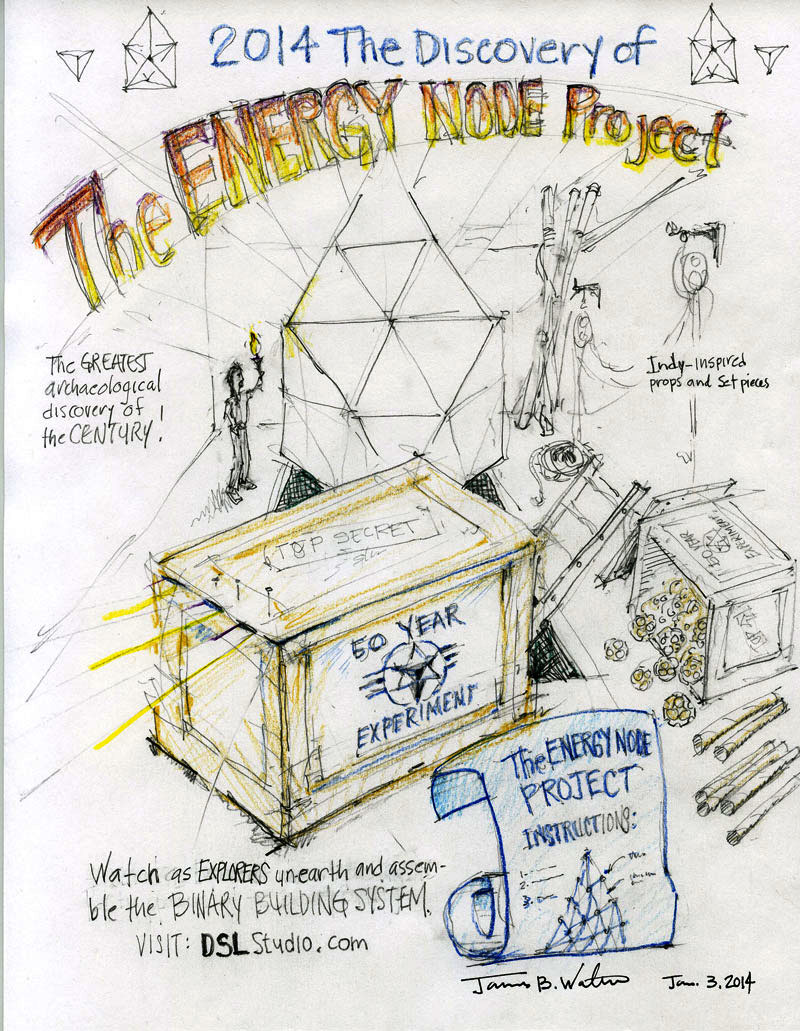 2014 The Discovery of
The ENERGY NODE Project
The GREATEST
archaeological
discovery of
the CENTURY!
Indy-inspired
props and set pieces
TOP SECRET
50 YEAR
EXPERIMENT
50 YEAR
EXPERIMENT
The ENERGY NODE
PROJECT
INSTRUCTIONS:
1.
2.
3.
Watch as EXPLORERS un-earth and assem-
ble the BINARY BUILDING SYSTEM.
VISIT: DSLStudio.com
James B.
Jan. 3, 2014